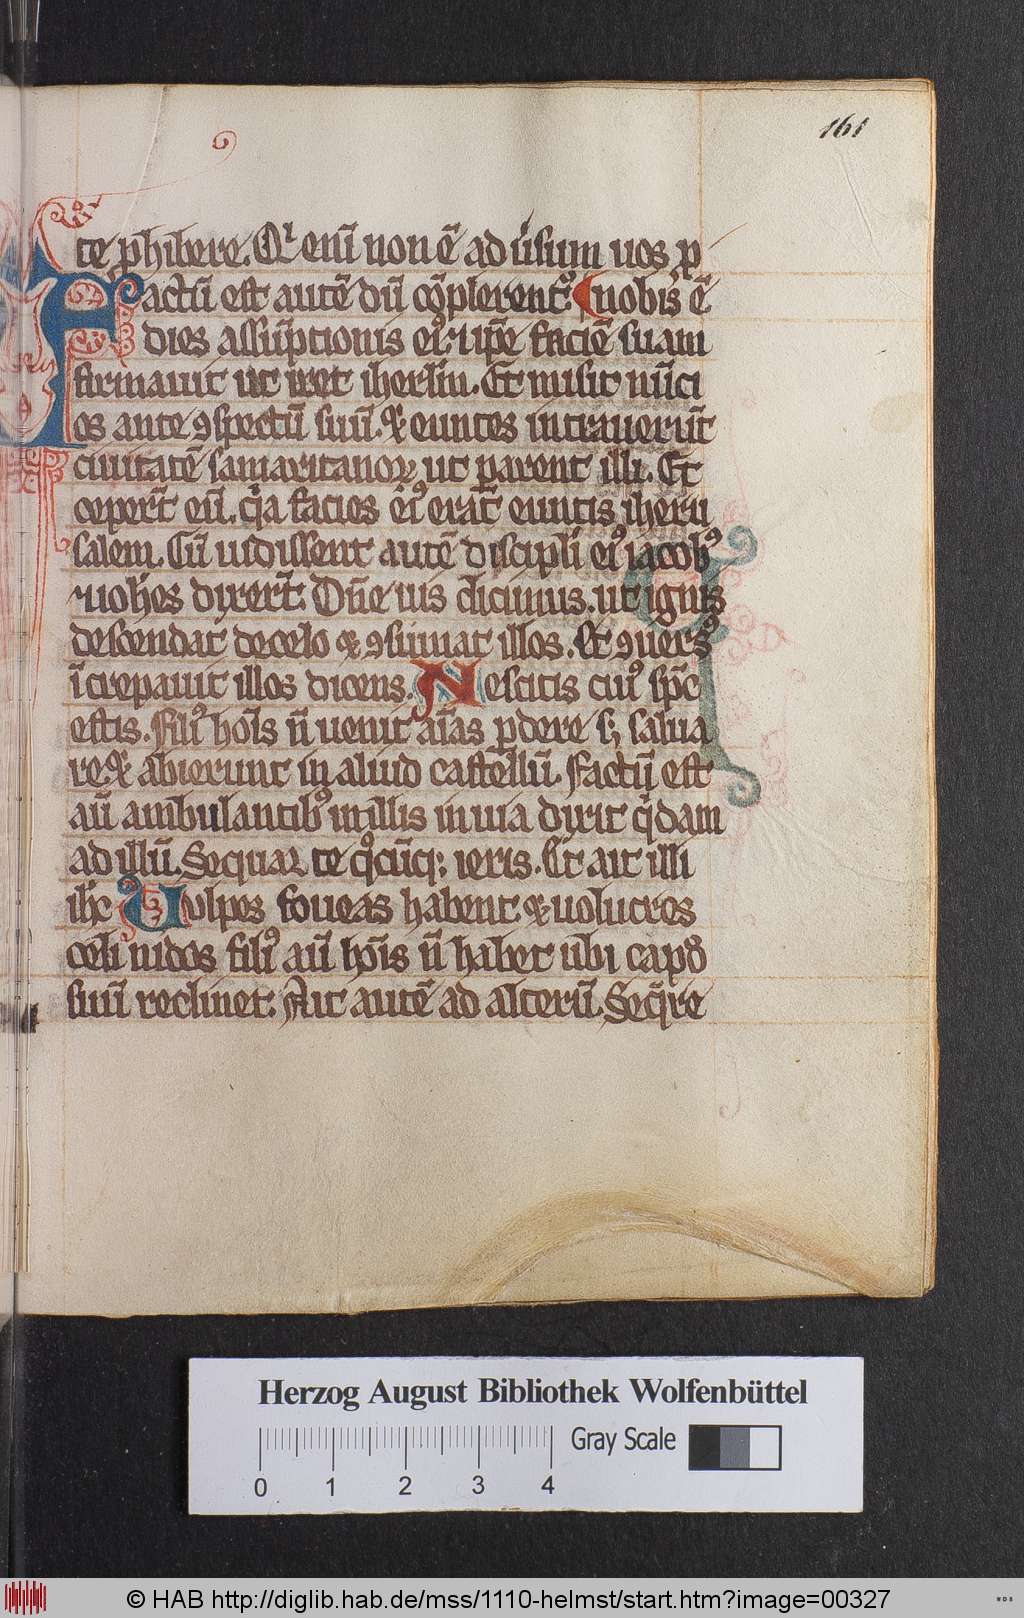 161
te phibere. Qͥ eni̅ non e̅ ad u̅sum uos p
Factu̅ est aute̅ du̅ co̅plerent᷑. uobis e̅
dies assu̅ptionis eiꝰ. ⁊ ip̅e facie̅ suam
firmauit ut iret ihrl̅m. Et misit nu̅ci
os ante ꝯspectu̅ suu̅. & euntes intraueru̅t
ciuitate̅ samaritanoꝝ ut parent illi. Et
ceper̅t eu̅. q̅a facies eiꝰ erat̅ euntis iheru
salem. Cu̅ uidissent aute̅ discipli̅ eiꝰ iacobꝰ
⁊ ioh̅es dixer̅t. Dn̅e uis dicimus. ut ignis
descendat de celo & ꝯsumat illos. Et ꝯuersꝰ
i̅crepauit illos dicens. Nescitis cuiꝰ sp̅c
estis. Filiꝰ ho̅is n̅ uenit ai̅as ꝑdere sꝫ salua
re. & abierunt in aliud castellu̅. Factu̅ est
au̅ ambulantibꝰ illis in uia dixit qͥdam
ad illu̅. Sequar te qͦcu̅qꝫ ieris. Et ait illi
ih̅c Uulpes foueas habent & uolucres
celi nidos filiꝰ au̅ ho̅is n̅ habet ubi capđ
suu̅ reclinet. Ait aute̅ ad alteru̅. Seq̅re
Herzog August Bibliothek Wolfenbüttel
Gray Scale
0 1 2 3 4
© HAB http://diglib.hab.de/mss/1110-helmst/start.htm?image=00327